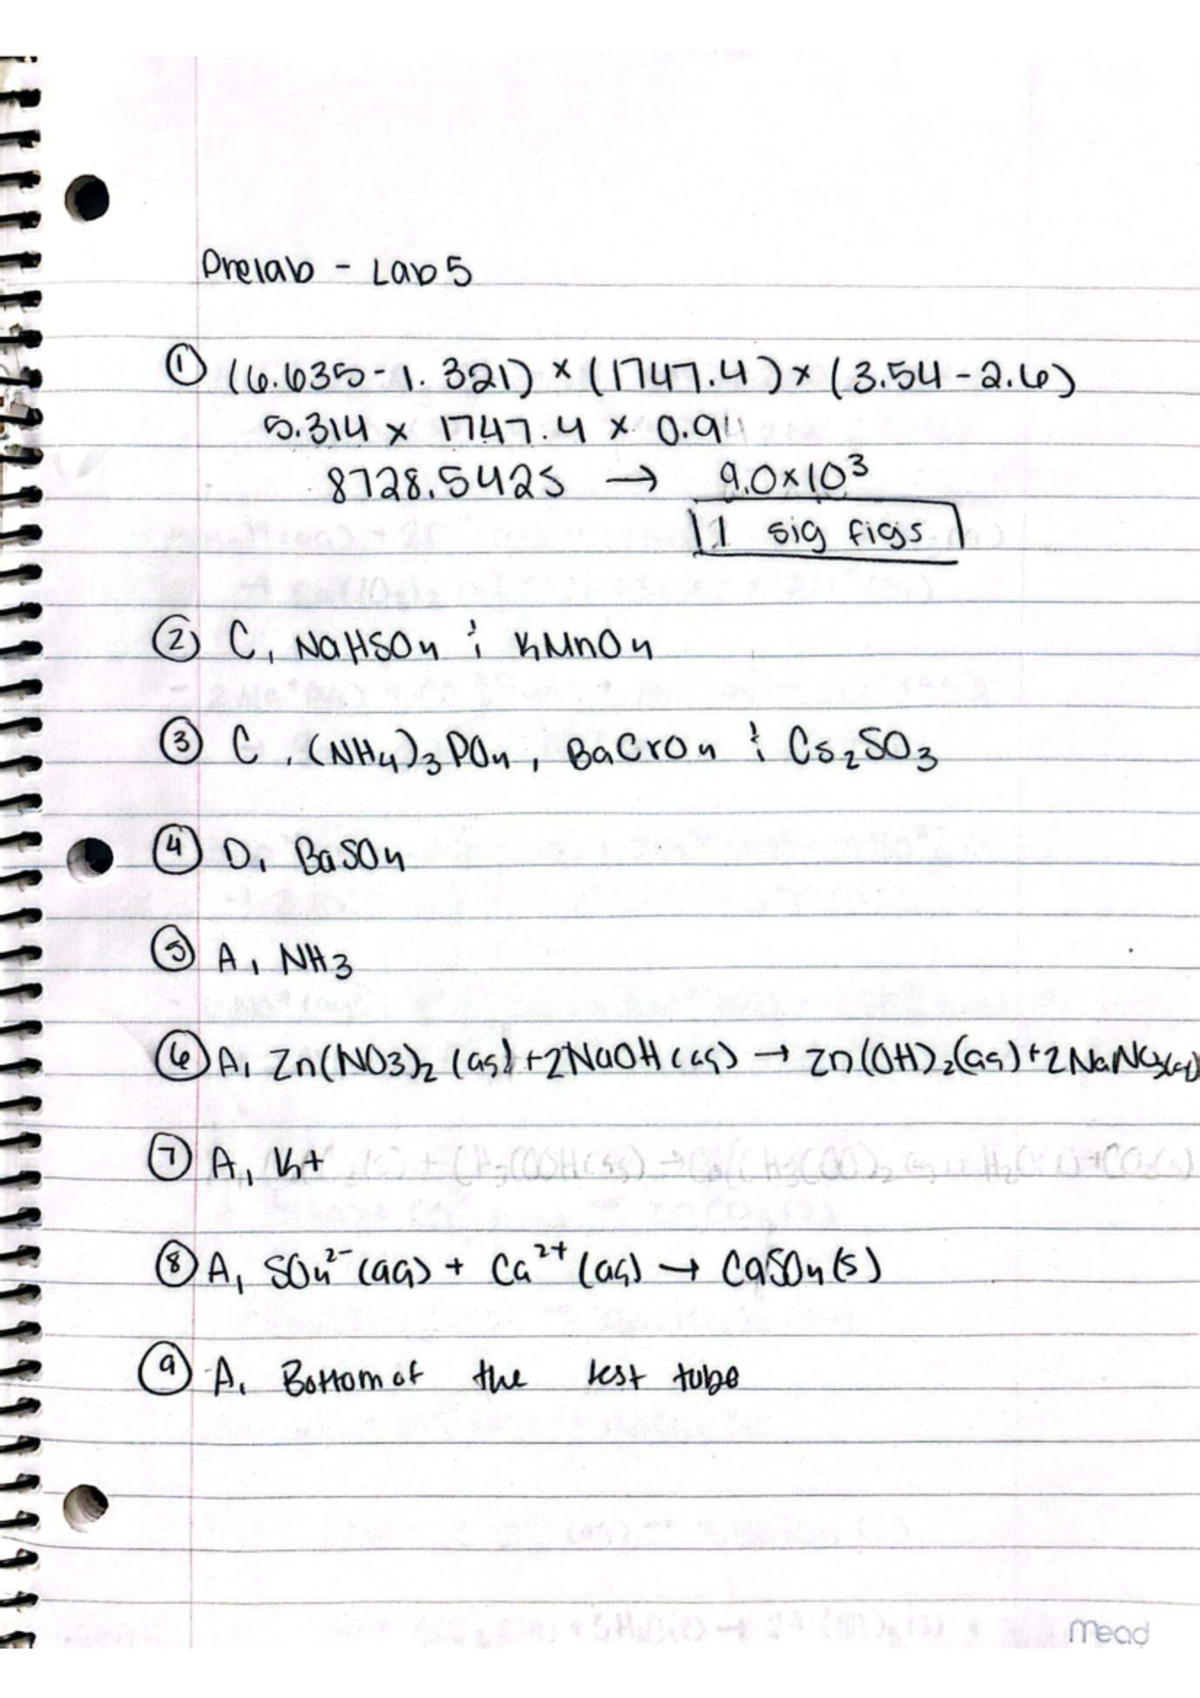 Prelab - Lab 5
① (6.635-1.321) × (1747.4) × (3.54-2.6)
5.314 × 1747.4 × 0.94
8728.5425 → 9.0×10³
1 sig figs
② C, NaHSO4 & KMnO4
③ C, (NH4)3PO4, BaCrO4 & Cs2SO3
④ D, BaSO4
⑤ A, NH3
⑥ A, Zn(NO3)2 (aq) + 2NaOH (aq) → Zn(OH)2 (aq) + 2NaNO3(aq)
⑦ A, K+
⑧ A, SO4²⁻ (aq) + Ca²⁺ (aq) → CaSO4 (s)
⑨ A, Bottom of the test tube
mead